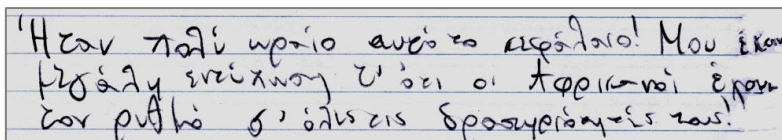 Ήταν πολύ ωραίο αυτό το κεφάλαιο! Μου έκαν
μεγάλη εντύπωση τ' ότι οι Αφρικανοί έχουν
τον ρυθμό σ' όλες τις δραστηριότητές τους!